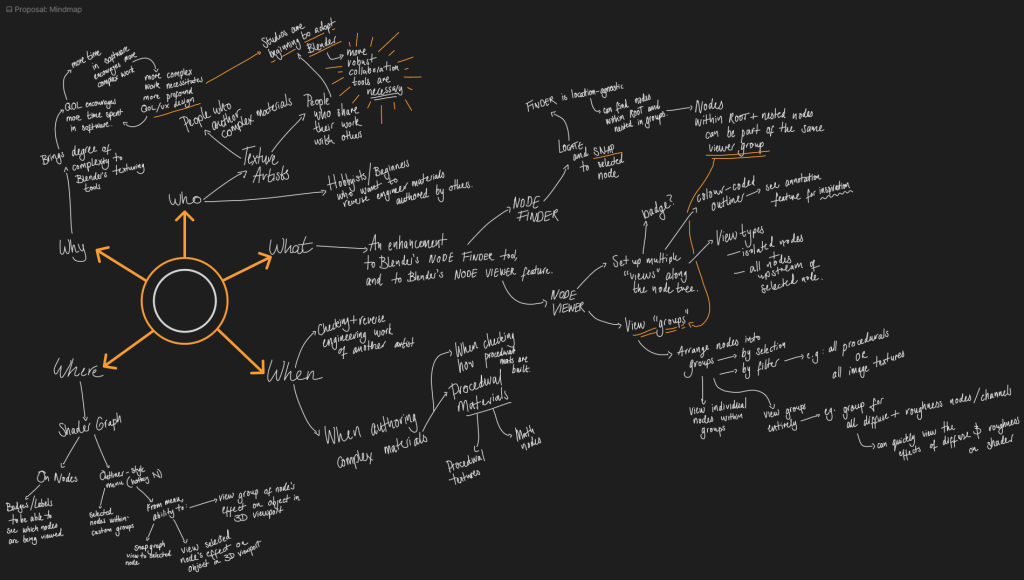 Proposal: Mindmap
Why
Brings degree of
complexity to
Blender's texturing
tools
QOL encourages
more time spent
in software.
more time
in software
encourages more
complex work
more complex
work necessitates
more profound
QOL/UX design
Studios are
beginning to adopt
Blender
more
robust
collaboration
tools are
necessary
Who
Texture
Artists
People who
author
complex materials
People
who share
their work
with others
Hobbyists/Beginners
who want to
reverse engineer materials
authored by others.
What
An enhancement
to Blender's NODE FINDER tool,
and to Blender's NODE VIEWER feature.
NODE
FINDER
LOCATE
and SNAP
to selected
node
FINDER is location-agnostic
can find nodes
within ROOT and
nested in groups.
Nodes
within ROOT + nested nodes
can be part of the same
viewer group
NODE
VIEWER
Set up multiple
"views" along
the node tree.
badge?
colour-coded
outliner
see annotation
feature for inspiration
View types
— isolated nodes
— all nodes
upstream of
selected node.
View "groups"
Arrange nodes into
groups
by selection
by filter
e.g: all procedurals
OR
all image textures
View individual
nodes within
groups
View groups
entirely
eg. group for
all diffuse + roughness nodes/channels
can quickly view the
effects of diffuse & roughness
on shader
When
Checking + reverse
engineering work
of another artist
When authoring
complex materials
Procedural
Materials
When checking
how procedural
mats are
built.
Procedural
textures
Math
nodes
Where
Shader Graph
On Nodes
Badges/Labels
to be able to
see which nodes
are being viewed
Outliner-style
menu (hotkey N)
selected
nodes within
custom groups
From menu,
ability to:
snap graph
view to selected
node
view selected
node's effect on
object in 3D viewport
view group of node's
effect on object in
3D viewport